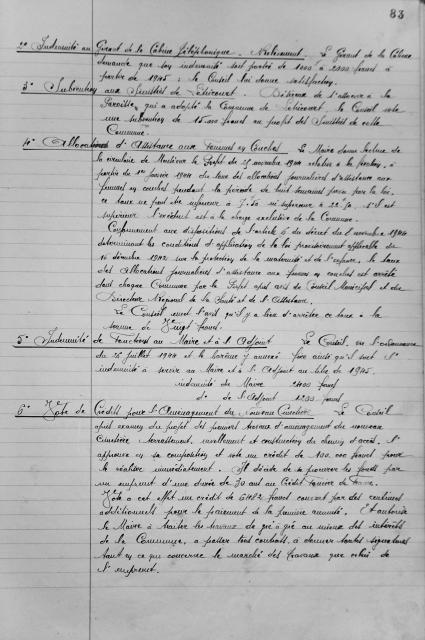 83
2° Indemnité au Gérant de la Cabine Téléphonique - Relèvement. Le Gérant de la Cabine
demande que son indemnité soit portée de 1000 à 2000 francs à
partir de 1945 ; le Conseil lui donne satisfaction.
3° Subvention aux Sinistrés de Désireux de s'associer à la
qui a adopté la Commune de le Conseil vote
une subvention de 15.000 francs au profit des Sinistrés de cette
Commune.
4° Allocations d'Assistance aux Femmes en Couches Le Maire donne lecture de
la circulaire de Monsieur le Préfet du 25 novembre 1944 relative à la fixation, à
partir du 1er janvier 1944 du taux des allocations journalières d'assistance aux
femmes en couches pendant la période de huit semaines prévue par la loi.
ce taux ne peut être inférieur à 7f50 ni supérieur à S'il est
supérieur l'excédent est à la charge exclusive de la Commune.
Conformément aux dispositions de l'article 6 du décret du 2 novembre 1944
déterminant les conditions d'application de la loi provisoirement applicable du
16 décembre 1942 sur la protection de la maternité et de l'enfance, le taux
des allocations journalières d'assistance aux femmes en couches est arrêté
dans chaque Commune par le Préfet après avis du Conseil Municipal et du
Directeur Régional de la Santé et de l'Assistance.
Le Conseil émet l'avis qu'il y a lieu d'arrêter ce taux à la
somme de Vingt francs.
5° Indemnité de Fonctions au Maire et à l'Adjoint Le Conseil, vu l'ordonnance
du 26 juillet 1944 et le barème y annexé fixe ainsi qu'il suit l'
indemnité à servir au Maire et à l'Adjoint au titre de 1945.
indemnité du Maire 2400 francs
d° de l'Adjoint 1200 francs
6° Vote de Crédits pour l'Aménagement du Nouveau Cimetière Le Conseil
après examen du projet des premiers travaux d'aménagement du nouveau
Cimetière terrassement, nivellement et construction du chemin d'accès, l'
approuve en sa composition et vote un crédit de 100.000 francs pour
le réaliser immédiatement. Il décide de se procurer les fonds par
un emprunt d'une durée de 30 ans au Crédit Foncier de France.
Vote à cet effet un crédit de francs couvert par des centimes
additionnels pour le paiement de la première annuité. Et autorise
le Maire à traiter les travaux de gré à gré au mieux des intérêts
de la Commune, à passer tous contrats, à donner toutes signatures
tant en ce qui concerne le marché des travaux que celui de
l'emprunt.